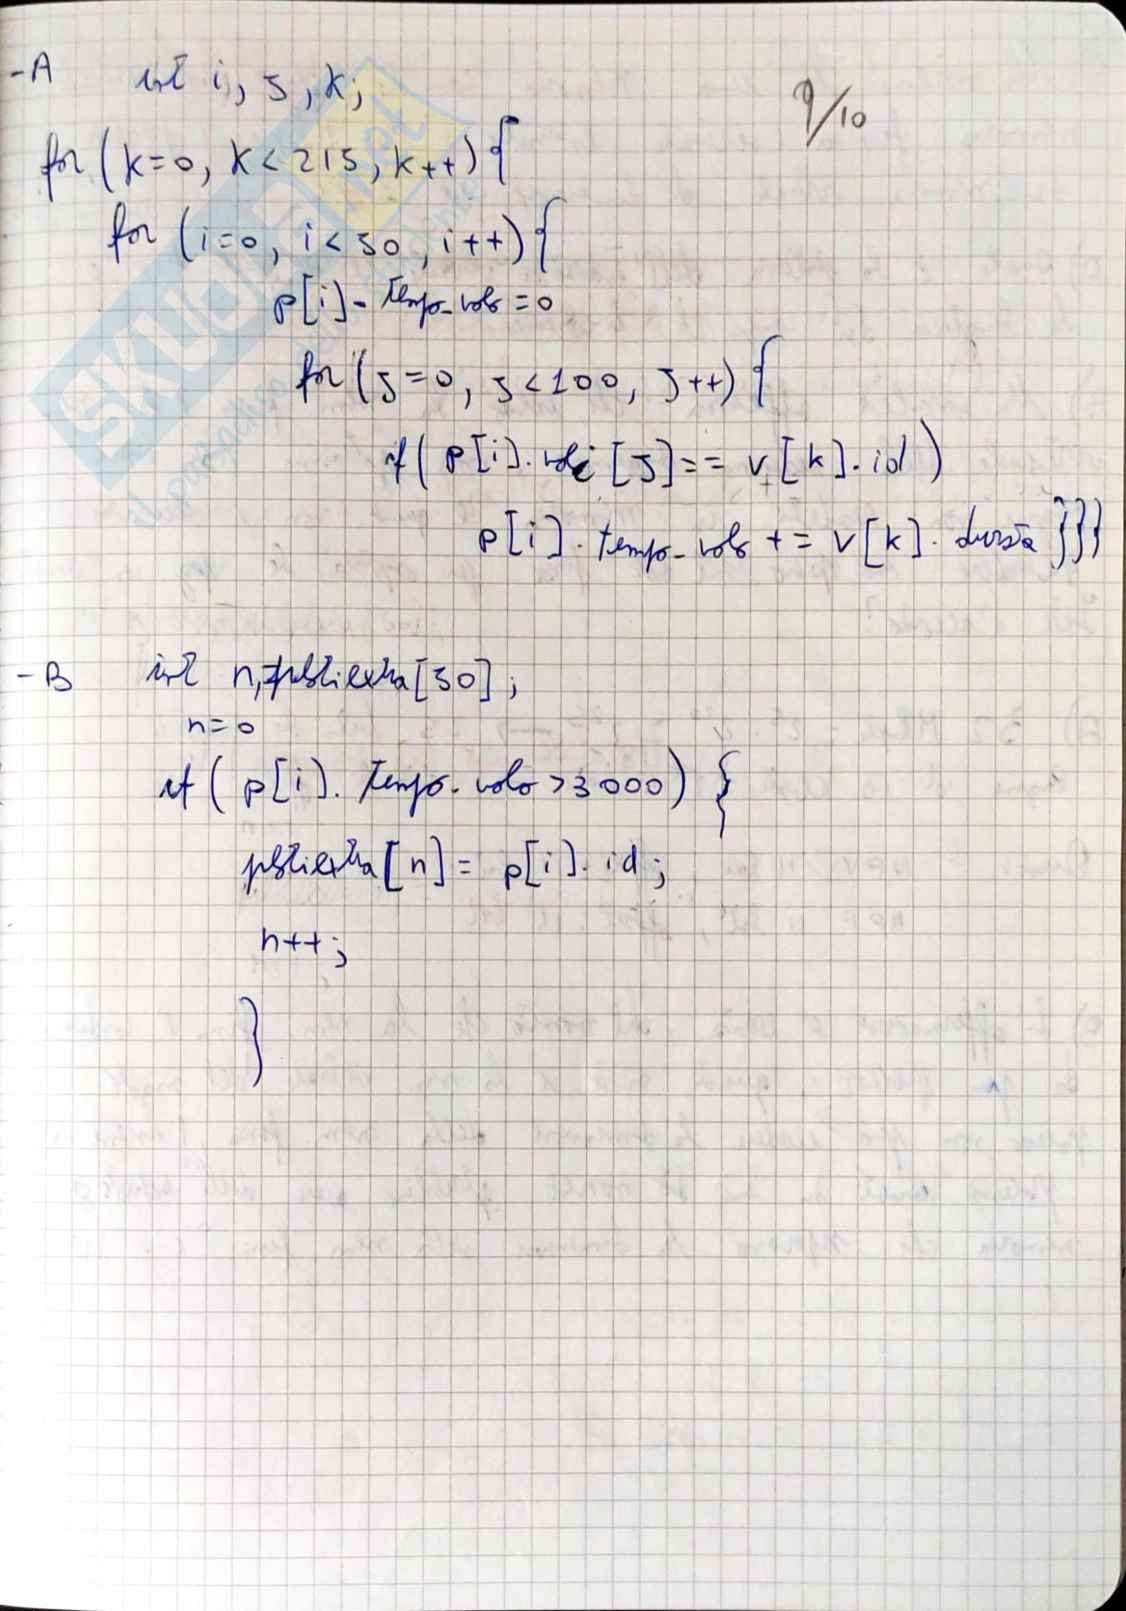 -A int i, j, k;
9/10
for (k=0, k<215, k++) {
for (i=0, i<50, i++) {
p[i]. tempo_volo = 0
for (j=0, j<100, j++) {
if( p[i].voli[j]== v[k].id )
p[i]. tempo_volo += v[k]. durata }}}
-B int n, pilotiextra[50];
n=0
if ( p[i]. tempo_volo >3000) {
pilotiextra[n]= p[i]. id;
n++;
}
SKUOLA.net